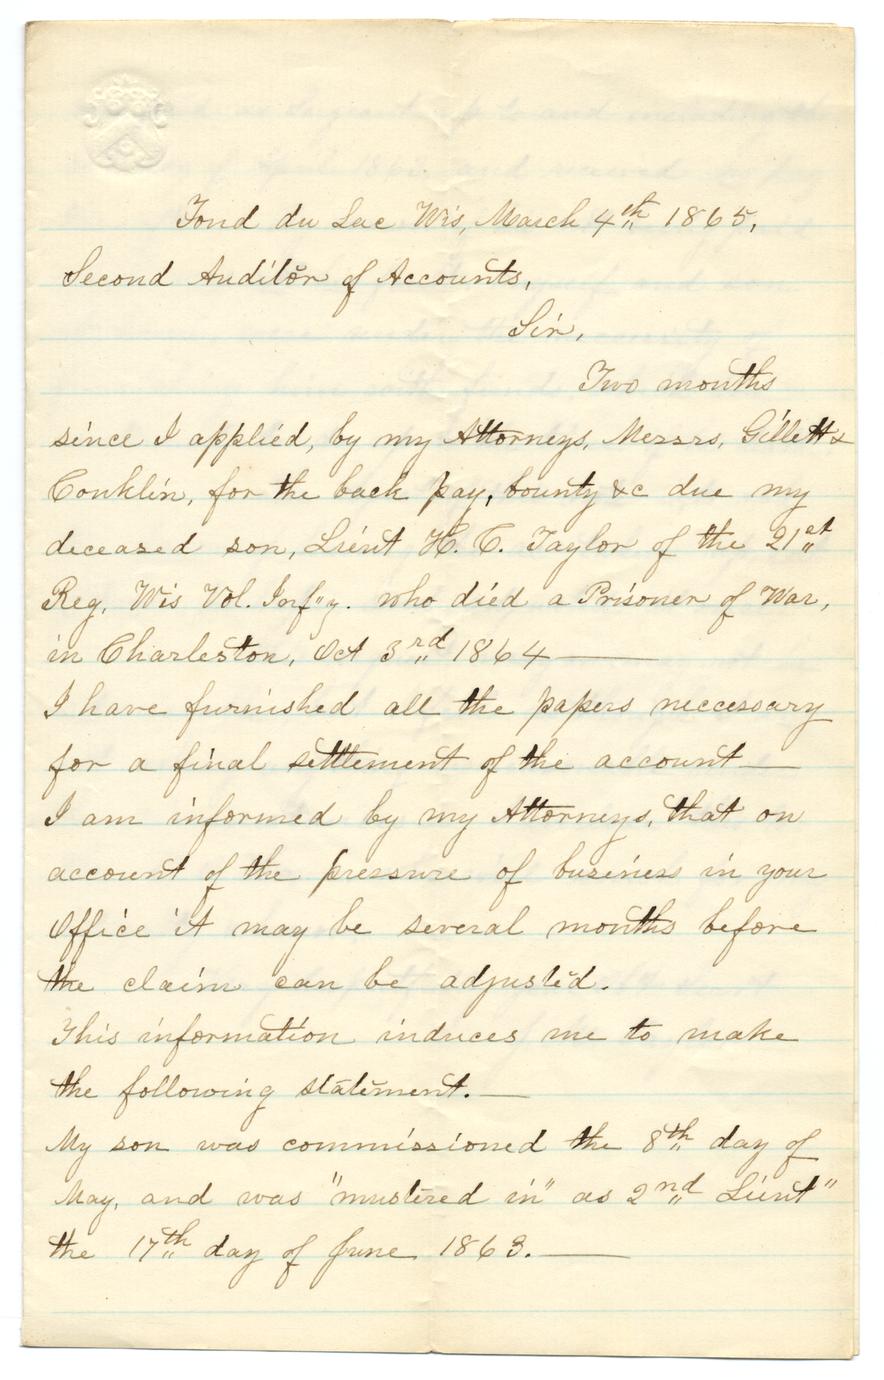 Fond du Lac Wis, March 4th 1865,
Second Auditor of Accounts,
Sir,
Two months
since I applied, by my Attorneys, Messrs, Gillett &
Conklin, for the back pay, bounty &c due my
deceased son, Lieut H. C. Taylor of the 21st
Reg, Wis Vol. Inf"y. who died a Prisoner of War,
in Charleston, Oct 3rd 1864 —
I have furnished all the papers neccessary
for a final settlement of the account —
I am informed by my Attorneys, that on
account of the pressure of business in your
Office it may be several months before
the claim can be adjusted.
This information induces me to make
the following statement. —
My son was commissioned the 8th day of
May, and was "mustered in" as 2nd Lieut"
the 17th day of June 1863. —